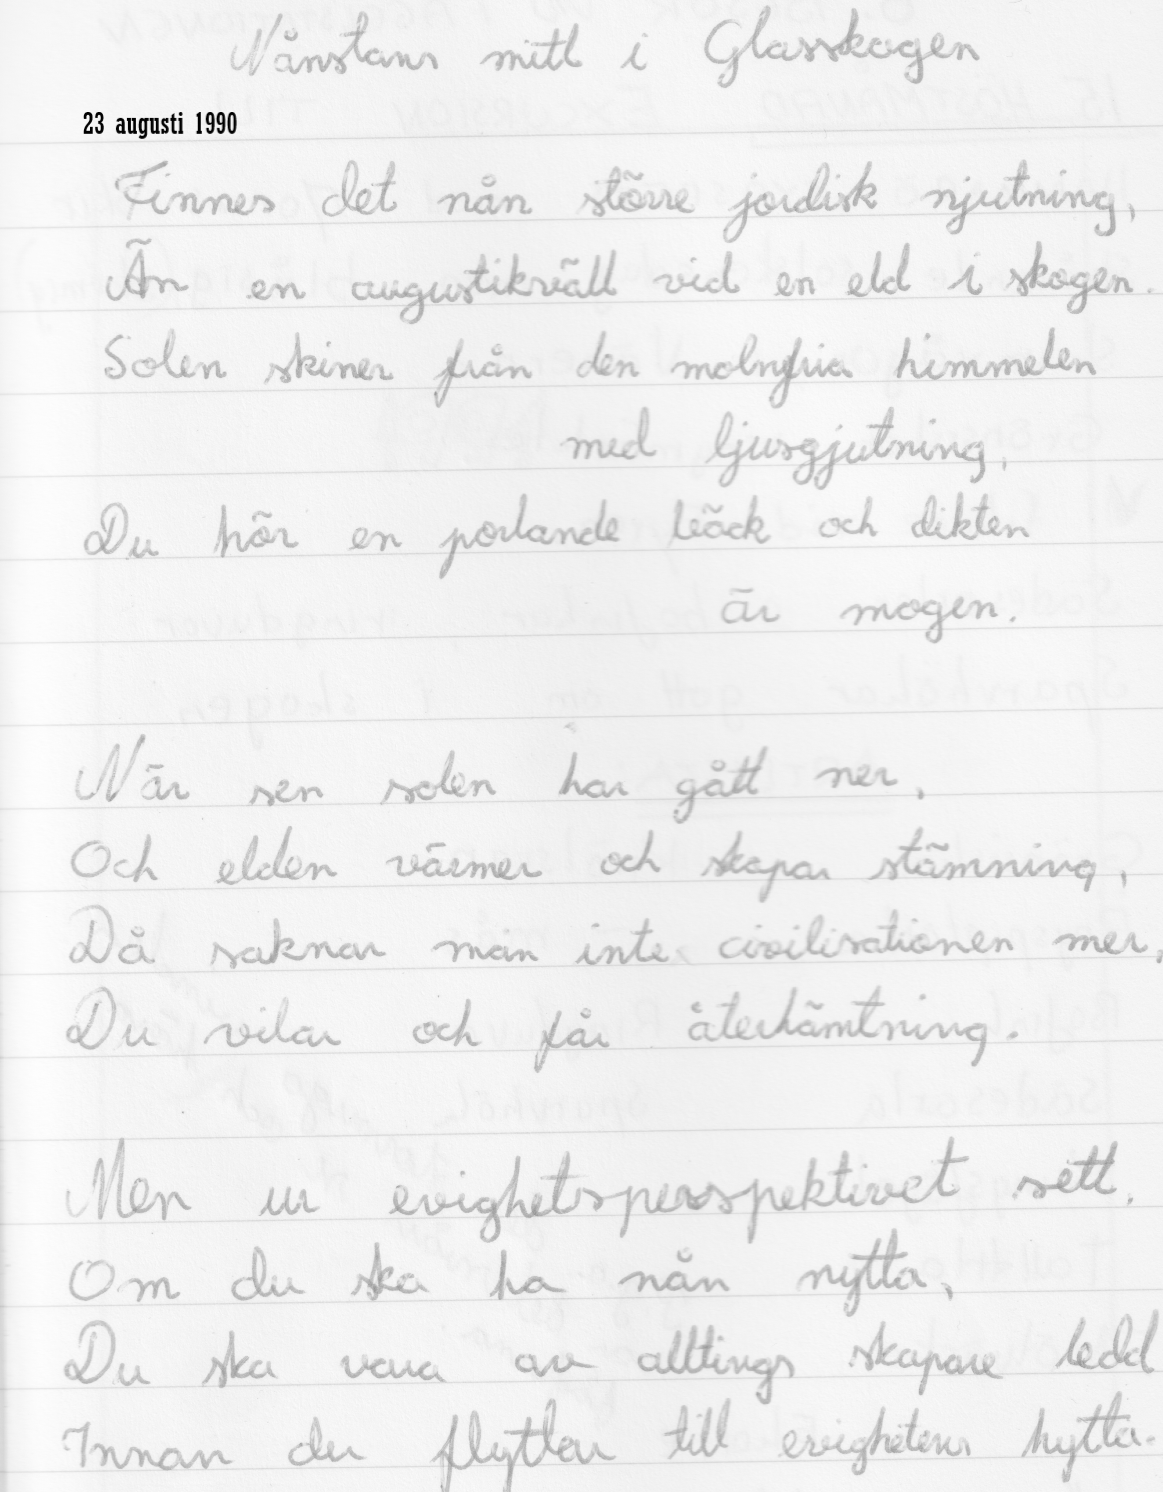 Nånstans mitt i Glasskogen
23 augusti 1990
Finnes det nån större jordisk njutning,
Än en augustikväll vid en eld i skogen.
Solen skiner från den molnfria himmelen
med ljusgjutning,
Du hör en porlande bäck och dikten
är mogen.
När sen solen har gått ner,
Och elden värmer och skapar stämning,
Då saknar man inte civilisationen mer,
Du vilar och får återhämtning.
Men ur evighetsperspektivet sett,
Om du ska ha nån nytta,
Du ska vara av alltings skapare ledd
Innan du flyttar till evighetens hytta.